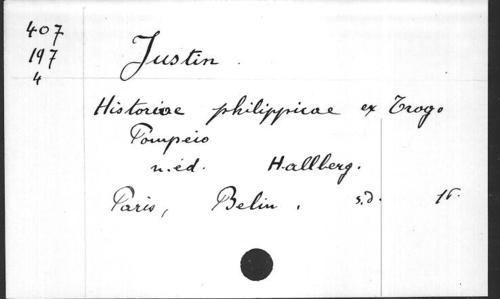 407
197
4
Justin.
Historiae philippicae ex Trogo
Pompeio
n.éd. Hallberg.
Paris, Belin. s.d. 16.